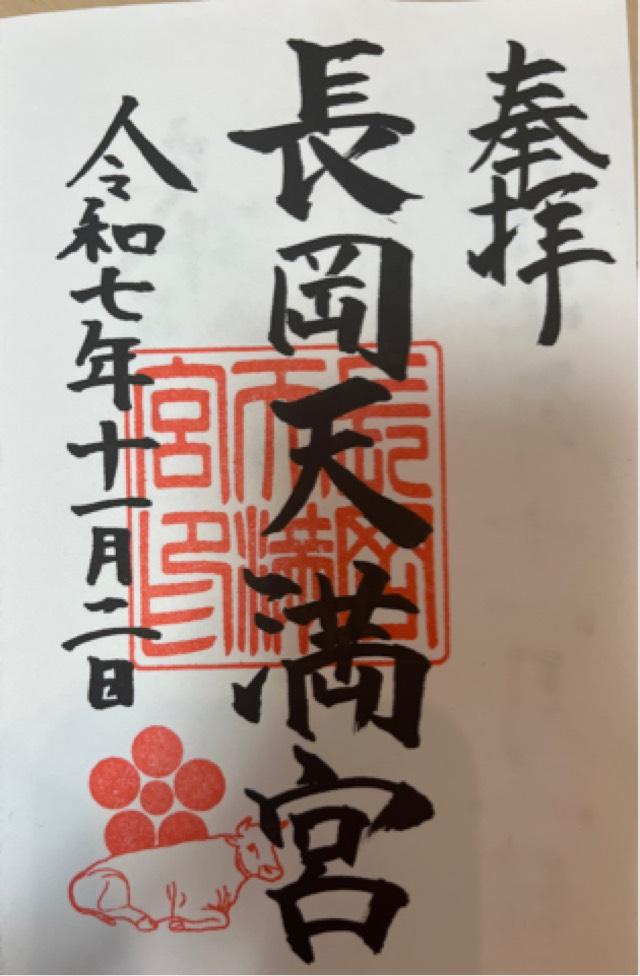 奉拝
長岡天満宮
令和七年十一月二日
長岡天満宮印